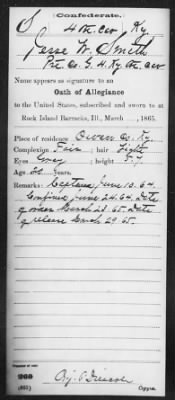 (Confederate.)
S 4 th. Cav Ky.
Jesse W. Smith
Pvt. Co. G. 4. Ky. Cav
Name appears as signature to an
Oath of Allegiance
to the United States, subscribed and sworn to at
Rock Island Barracks, Ill., March , 1865.
Place of residence Owen Co. Ky.
Complexion Fair ; hair Light
Eyes Grey ; height 5.7
Age Years.
Remarks: Captured June 10. 64.
Confined June 24. 64. Date
of order March 23 65. Date
of release March 29 65.
Copyist.